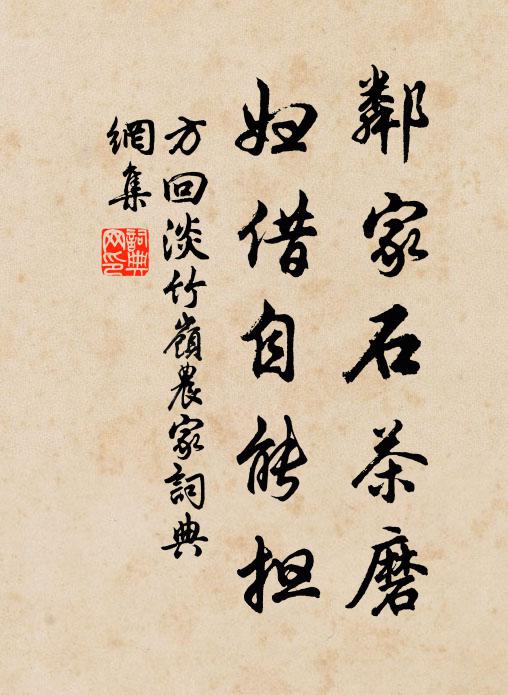 鄰家石茶磨
妲借自能担
方回淡竹嶺農家詞典
網集
詞典
网印